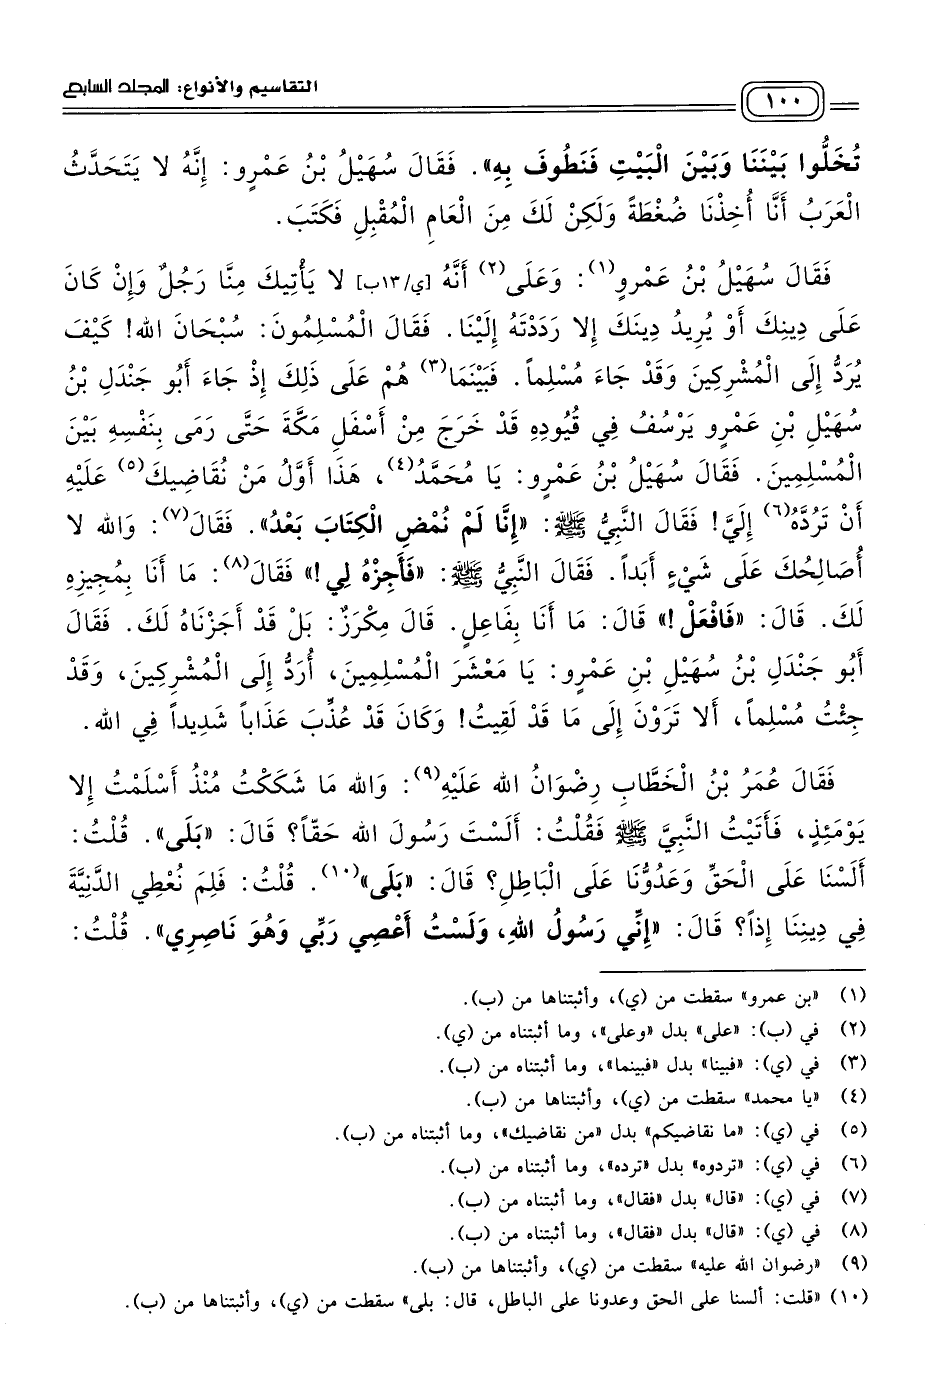 ١٠٠
التقاسيم والأنواع: المجلد السابع
تُخَلُّوا بَيْنَنَا وَبَيْنَ الْبَيْتِ فَنَطُوفَ بِهِ». فَقَالَ سُهَيْلُ بْنُ عَمْرٍو: إِنَّهُ لا يَتَحَدَّثُ
الْعَرَبُ أَنَّا أُخِذْنَا ضُغْطَةً وَلَكِنْ لَكَ مِنَ الْعَامِ الْمُقْبِلِ فَكَتَبَ.
فَقَالَ سُهَيْلُ بْنُ عَمْرٍو(١): وَعَلَى(٢) أَنَّهُ [ي/١٣ب] لا يَأْتِيكَ مِنَّا رَجُلٌ وَإِنْ كَانَ
عَلَى دِينِكَ أَوْ يُرِيدُ دِينَكَ إِلا رَدَدْتَهُ إِلَيْنَا. فَقَالَ الْمُسْلِمُونَ: سُبْحَانَ الله! كَيْفَ
يُرَدُّ إِلَى الْمُشْرِكِينَ وَقَدْ جَاءَ مُسْلِماً. فَبَيْنَمَا(٣) هُمْ عَلَى ذَلِكَ إِذْ جَاءَ أَبُو جَنْدَلِ بْنُ
سُهَيْلِ بْنِ عَمْرٍو يَرْسُفُ فِي قُيُودِهِ قَدْ خَرَجَ مِنْ أَسْفَلِ مَكَّةَ حَتَّى رَمَى بِنَفْسِهِ بَيْنَ
الْمُسْلِمِينَ. فَقَالَ سُهَيْلُ بْنُ عَمْرٍو: يَا مُحَمَّدُ(٤)، هَذَا أَوَّلُ مَنْ نُقَاضِيكَ(٥) عَلَيْهِ
أَنْ تَرُدَّهُ(٦) إِلَيَّ! فَقَالَ النَّبِيُّ ﷺ: «إِنَّا لَمْ نُمْضِ الْكِتَابَ بَعْدُ». فَقَالَ(٧): وَالله لا
أُصَالِحُكَ عَلَى شَيْءٍ أَبَداً. فَقَالَ النَّبِيُّ ﷺ: «فَأَجِزْهُ لِي!» فَقَالَ(٨): مَا أَنَا بِمُجِيزِهِ
لَكَ. قَالَ: «فَافْعَلْ!» قَالَ: مَا أَنَا بِفَاعِلٍ. قَالَ مِكْرَزٌ: بَلْ قَدْ أَجَزْنَاهُ لَكَ. فَقَالَ
أَبُو جَنْدَلِ بْنُ سُهَيْلِ بْنِ عَمْرٍو: يَا مَعْشَرَ الْمُسْلِمِينَ، أُرَدُّ إِلَى الْمُشْرِكِينَ، وَقَدْ
جِئْتُ مُسْلِماً، أَلا تَرَوْنَ إِلَى مَا قَدْ لَقِيتُ! وَكَانَ قَدْ عُذِّبَ عَذَاباً شَدِيداً فِي الله.
فَقَالَ عُمَرُ بْنُ الْخَطَّابِ رِضْوَانُ الله عَلَيْهِ(٩): وَالله مَا شَكَكْتُ مُنْذُ أَسْلَمْتُ إِلا
يَوْمَئِذٍ، فَأَتَيْتُ النَّبِيَّ ﷺ فَقُلْتُ: أَلَسْتَ رَسُولَ الله حَقّاً؟ قَالَ: «بَلَى». قُلْتُ:
أَلَسْنَا عَلَى الْحَقِّ وَعَدُوُّنَا عَلَى الْبَاطِلِ؟ قَالَ: «بَلَى»(١٠). قُلْتُ: فَلِمَ نُعْطِي الدَّنِيَّةَ
فِي دِينِنَا إِذاً؟ قَالَ: «إِنِّي رَسُولُ اللهِ، وَلَسْتُ أَعْصِي رَبِّي وَهُوَ نَاصِرِي». قُلْتُ:
(١) «بن عمرو» سقطت من (ي)، وأثبتناها من (ب).
(٢) في (ب): «على» بدل «وعلى»، وما أثبتناه من (ي).
(٣) في (ي): «فبينا» بدل «فبينما»، وما أثبتناه من (ب).
(٤) «يا محمد» سقطت من (ي)، وأثبتناها من (ب).
(٥) في (ي): «ما نقاضيكم» بدل «من نقاضيك»، وما أثبتناه من (ب).
(٦) في (ي): «تردوه» بدل «ترده»، وما أثبتناه من (ب).
(٧) في (ي): «قال» بدل «فقال»، وما أثبتناه من (ب).
(٨) في (ي): «قال» بدل «فقال»، وما أثبتناه من (ب).
(٩) «رضوان الله عليه» سقطت من (ي)، وأثبتناها من (ب).
(١٠) «قلت: ألسنا على الحق وعدونا على الباطل، قال: بلى» سقطت من (ي)، وأثبتناها من (ب).